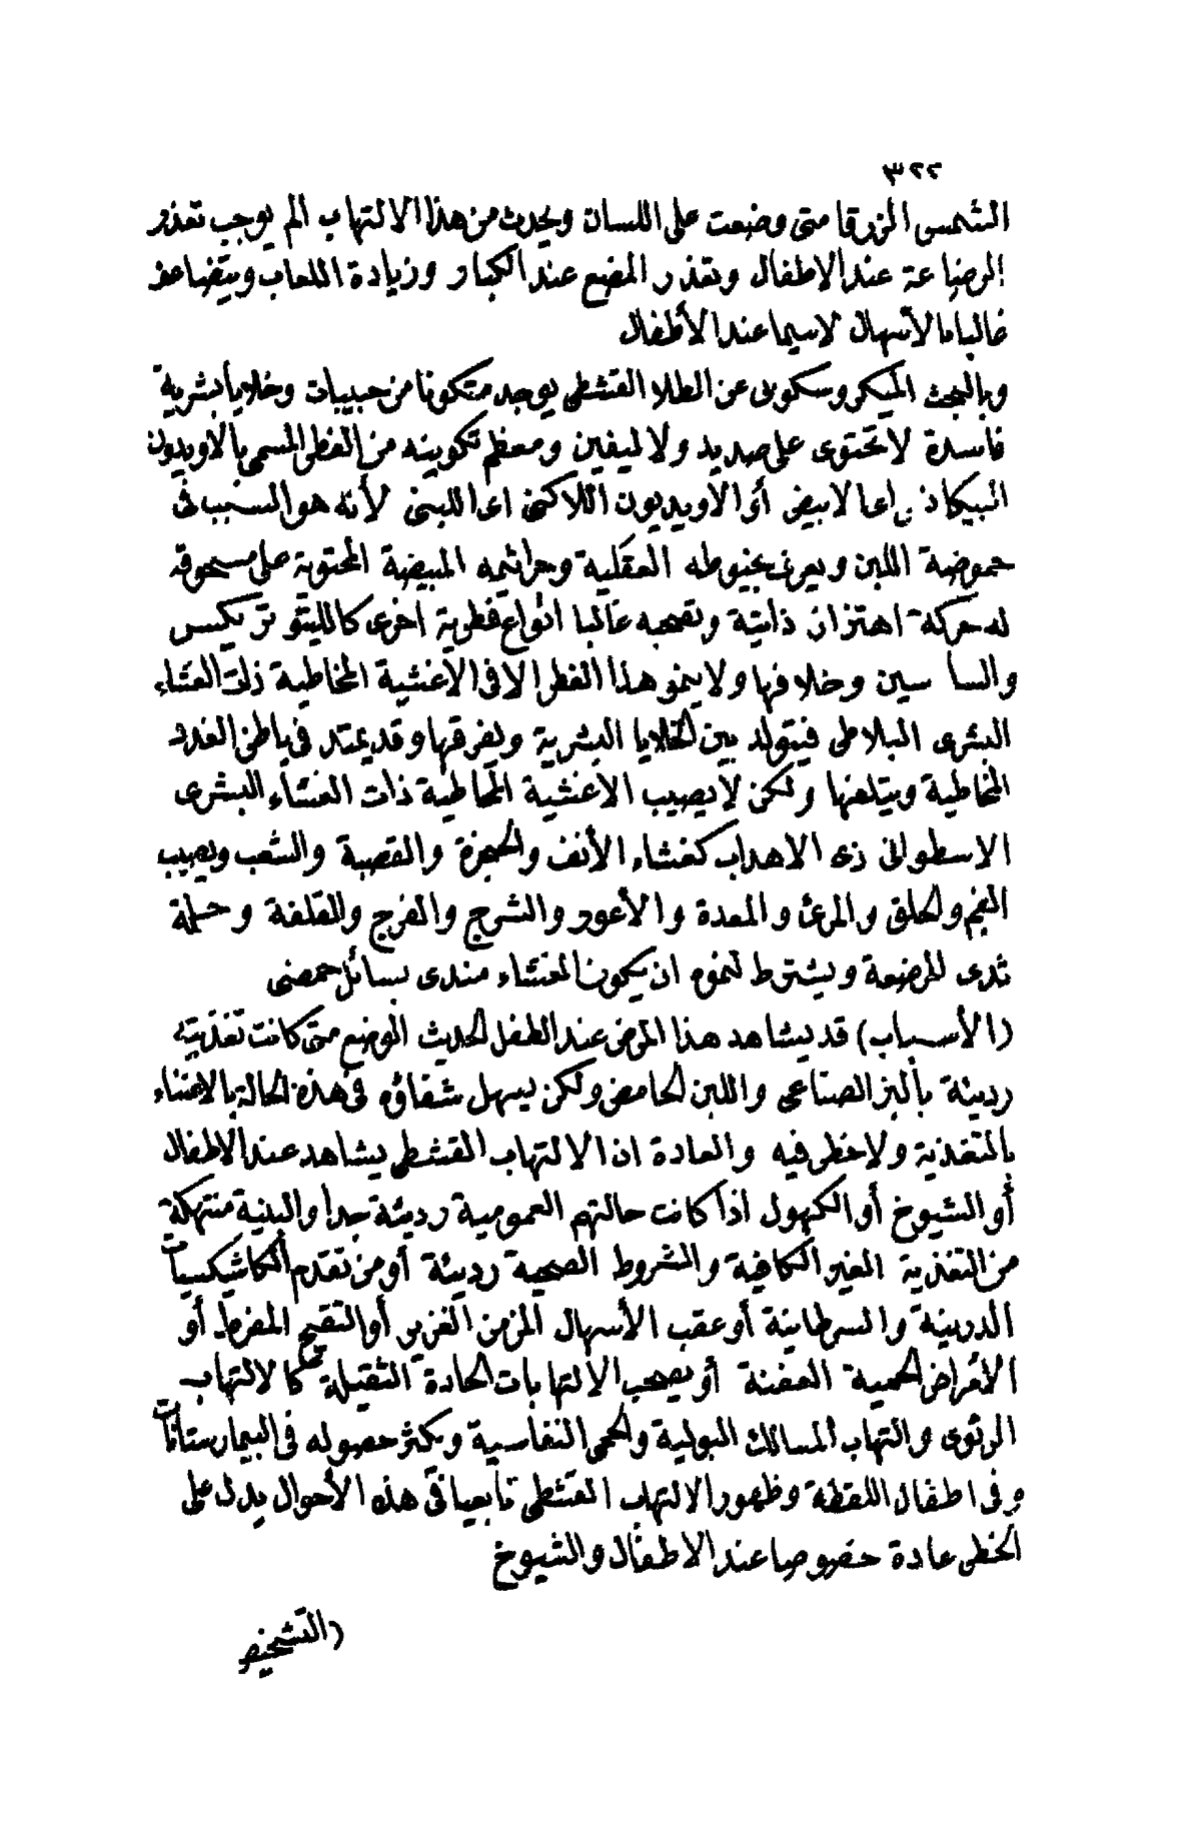 ٣٢٢
الشمس الزرقا متى وضعت على اللسان ويحدث من هذا الالتهاب الم يوجب تعذر
الرضاعة عند الاطفال وتعذر المضغ عند الكبار وزيادة اللعاب ويتضاعف
غالبا بالاسهال لاسيما عند الأطفال
وبالبحث الميكروسكوبى عن الطلا القشطى يوجد متكونا من حبيبات وخلايا بشرية
فاسدة لا تحتوى على صديد ولا ليفين ومعظم تكوينه من الفطر المسمى بالاويديون
البيكاذ اى الابيض أو الاويديون اللاكتى اى اللبنى لأنه هو السبب فى
حموضة اللبن ويعرف بخيوطه العقلية وجراثيمه المبيضة المحتوية على مسحوق
له حركة اهتزاز ذاتية وتصحبه غالبا انواع فطرية اخرى كالليتوتريكس
والسا سين وخلافها ولا ينمو هذا الفطر الا فى الاغشية المخاطية ذات الغشاء
البشرى البلاطى فيتولد بين الخلايا البشرية ويفرقها وقد يمتد فى باطن الغدد
المخاطية ويتلفها ولكن لا يصيب الاغشية المخاطية ذات الغشاء البشرى
الاسطوانى ذى الاهداب كغشاء الأنف والحنجرة والقصبة والشعب ويصيب
الفم والحلق والمرئ والمعدة والأعور والشرج والفرج والقلفة وحلمة
ثدى المرضعة ويشترط لنموه ان يكون الغشاء مندى بسائل حمضى
(الأسباب) قد يشاهد هذا المرض عند الطفل الحديث الوضع متى كانت تغذيته
رديئة بالبز الصناعى واللبن الحامض ولكن يسهل شفاؤه فى هذه الحالة بالاعتناء
بالتغذية ولا خطر فيه والعادة ان الالتهاب القشطى يشاهد عند الاطفال
أو الشيوخ أو الكهول اذا كانت حالتهم العمومية رديئة جدا والبنية منتهكة
من التغذية الغير الكافية والشروط الصحية رديئة أو من تقدم الكاشيكسيات
الدرنية والسرطانية أو عقب الأسهال المزمن الغزير أو التقيح المفرط أو
الأمراض الحمية العفنة أو يصحب الالتهابات الحادة الثقيلة كالالتهاب
الرئوى والتهاب المسالك البولية والحمى النفاسية ويكثر حصوله فى البيمارستانات
وفى اطفال اللقطة وظهور الالتهاب القشطى تابعيا فى هذه الأحوال يدل على
الخطر عادة خصوصا عند الاطفال والشيوخ
(التشخيص